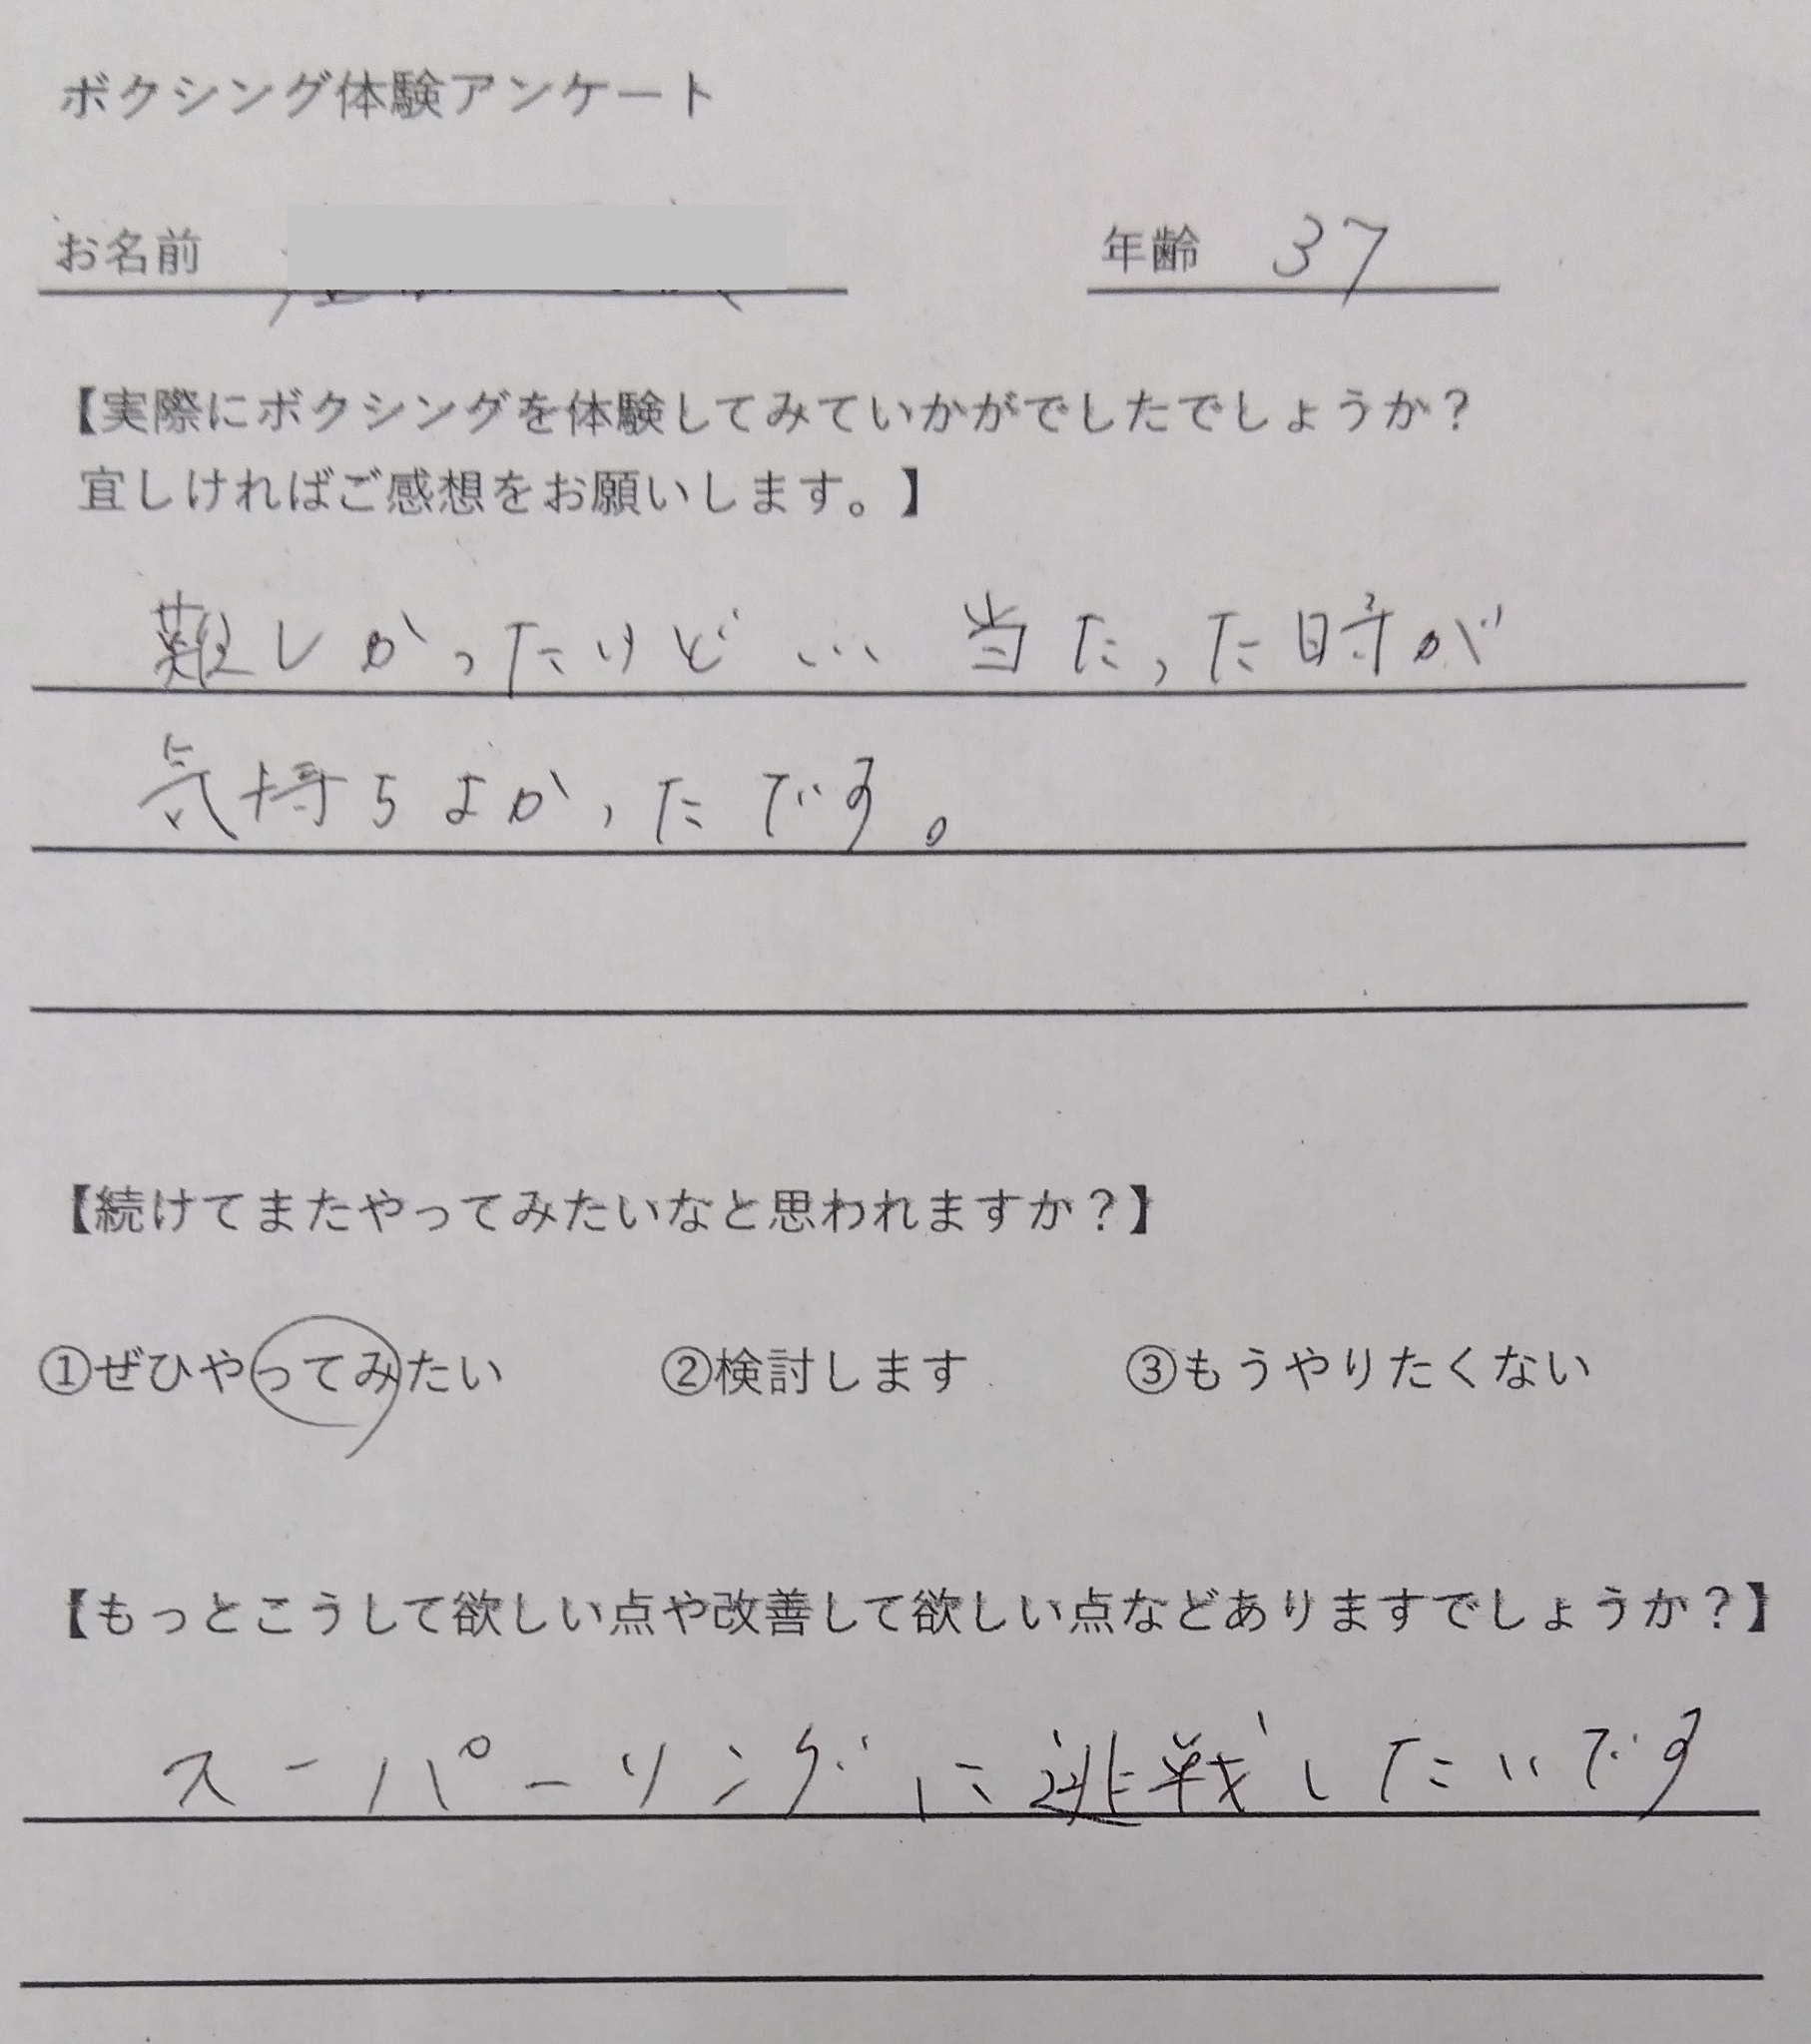 ボクシング体験アンケート
お名前 年齢 37
【実際にボクシングを体験してみていかがでしたでしょうか？
宜しければご感想をお願いします。】
難しかったけど… 当たった時が
気持ちよかったです。
【続けてまたやってみたいなと思われますか？】
①ぜひやってみたい ②検討します ③もうやりたくない
【もっとこうして欲しい点や改善して欲しい点などありますでしょうか？】
スーパーリングに逃戦したいです